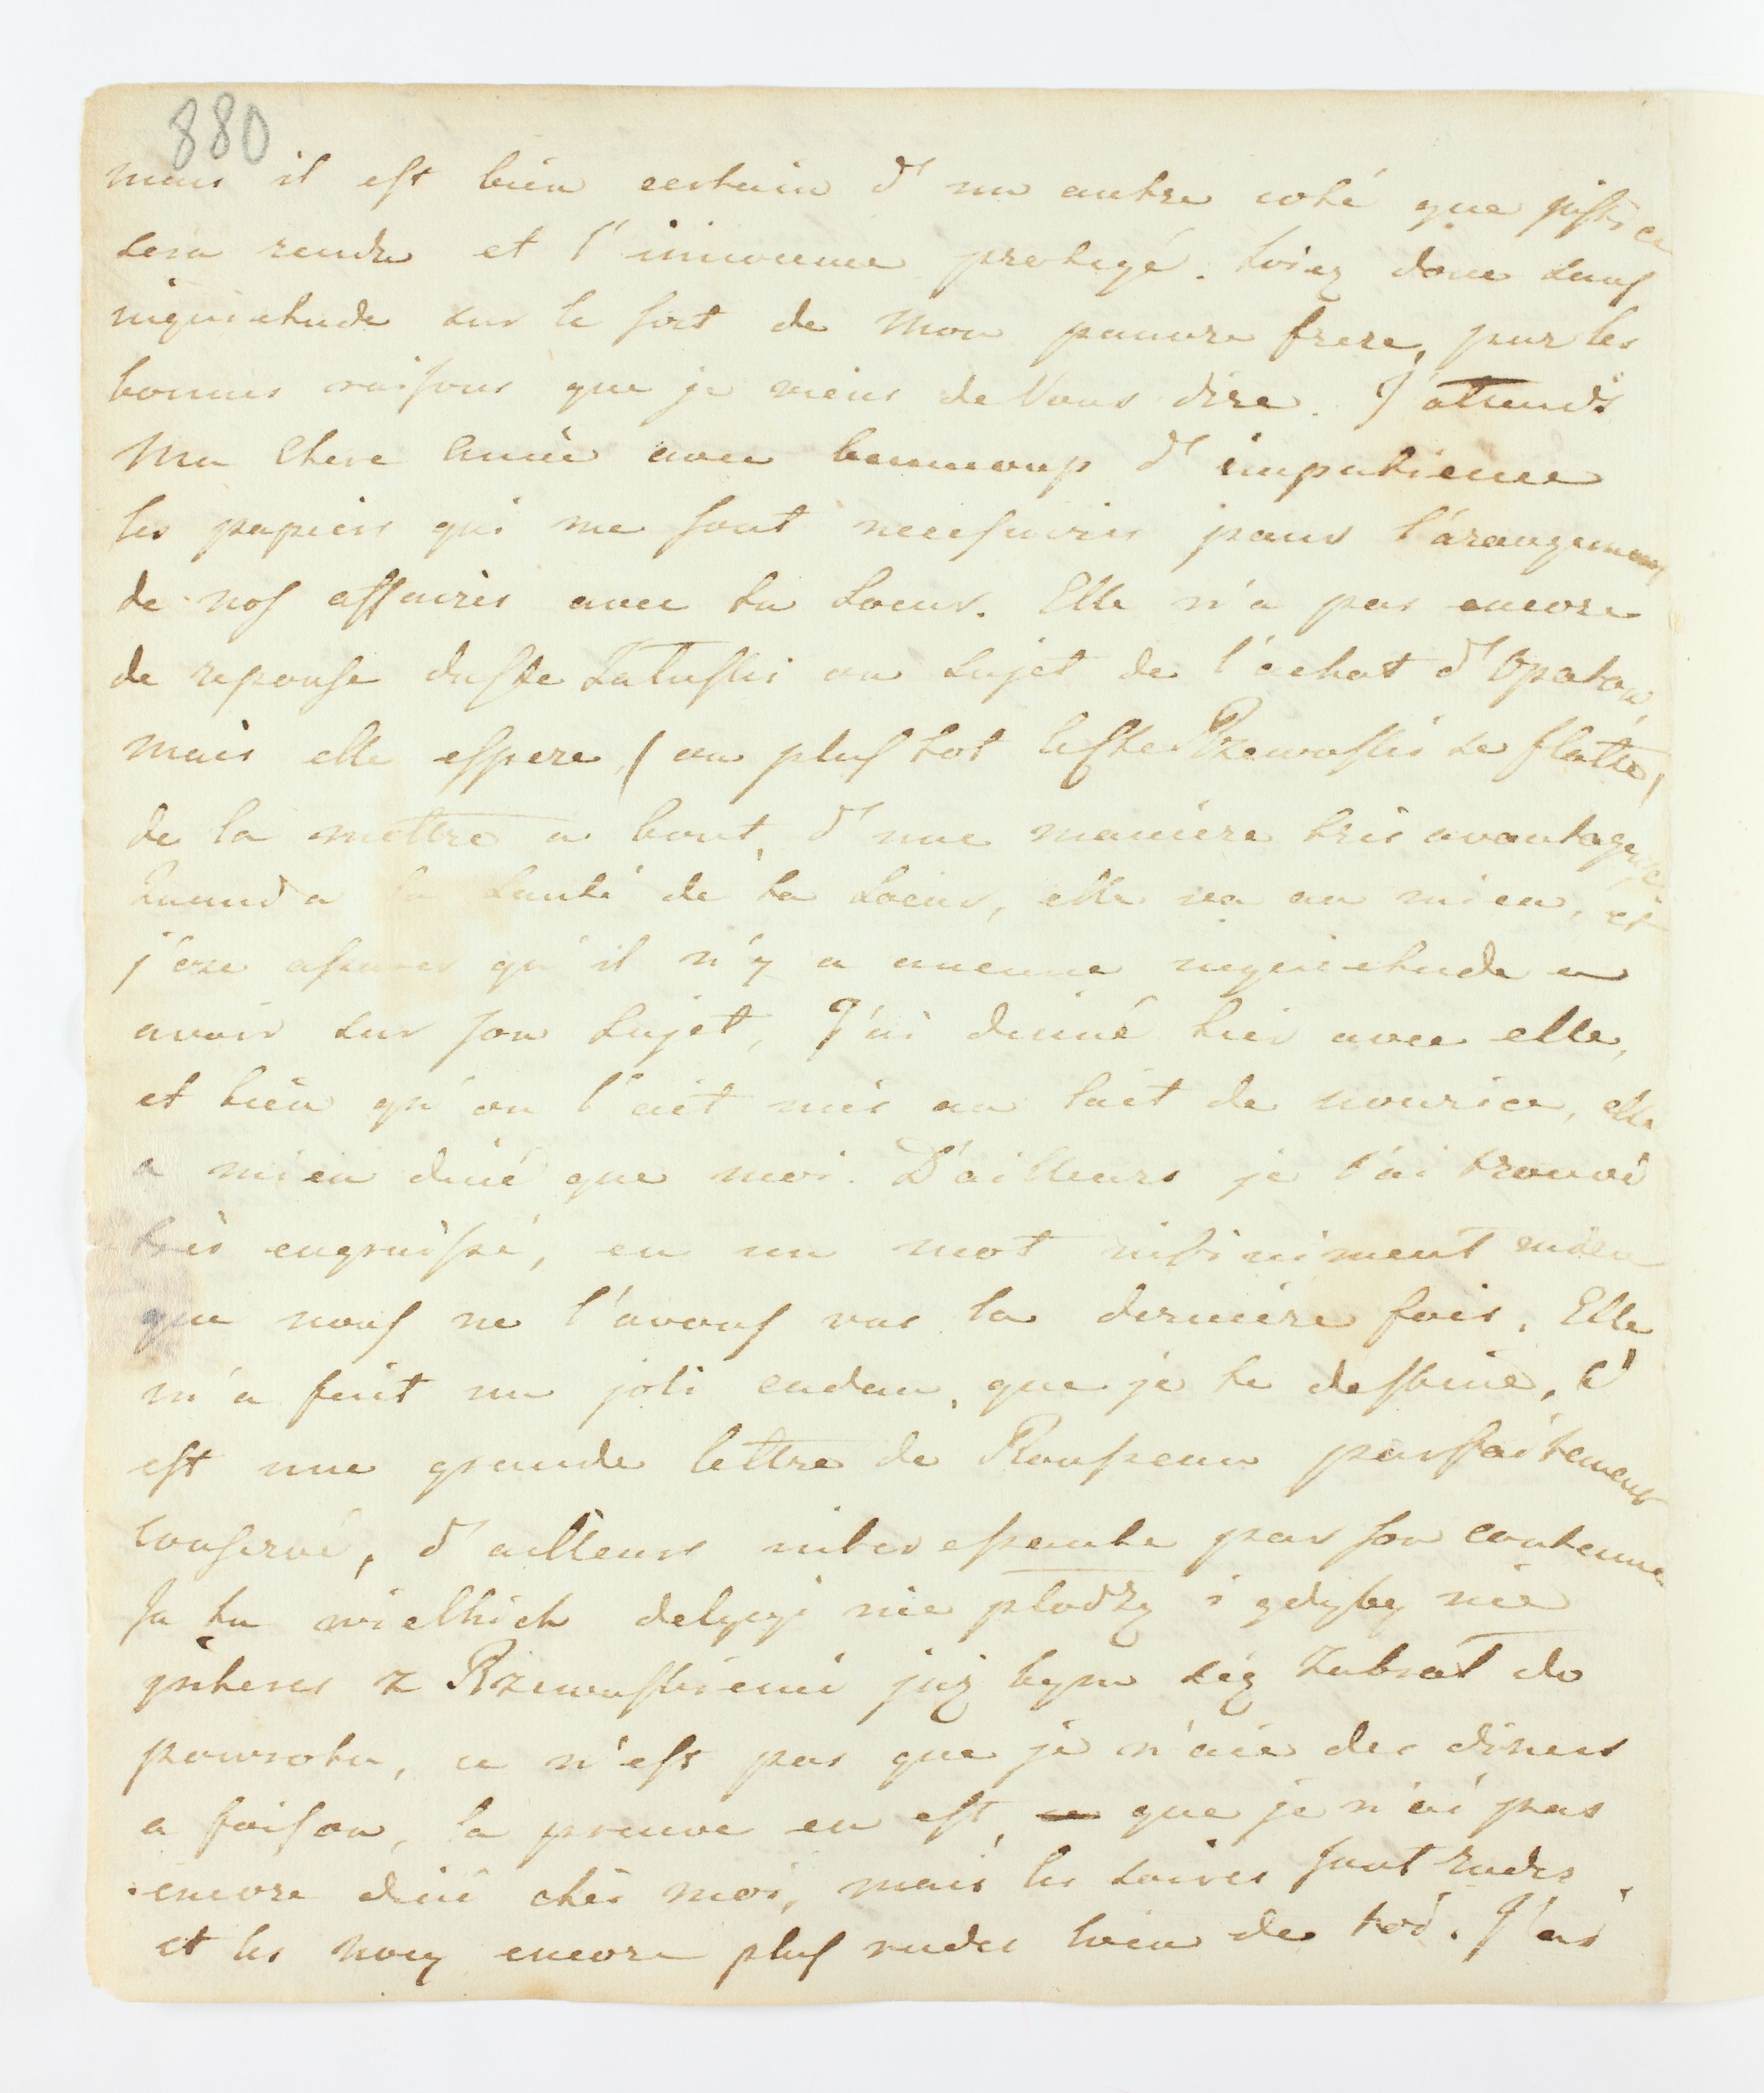 880
mais il est bien certain d'un autre coté que justice
sera rendu et l'innocence protegé. Soiez donc sans
inquietude sur le sort de mon pauvre frere, par les
bonnes raisons que je viens de Vous dire. J'attends
Ma Chere Amie avec beaucoup d'impatience
les papiers qui me sont necessaires pour l'arangement
de nos affaires avec ta Soeur. Elle n'a pas encore
de reponse du Cte Zaluski au sujet de l'achat d'Opatow,
mais elle espere, (ou plus tot le Cte Rzewuski se flatte)
de la mettre a bout, d'une maniere tres avantageuse
Quand a la Santé de ta Soeur, elle va au mieu, et
j'ose assurer qu'il n'y a aucune inquietude a
avoir sur son sujet, J'ai dinné hier avec elle,
et bien qu'on l'ait mis au lait de nourice, elle
a mieu diné que moi. D'ailleurs je l'ai trouvé
très engraissé, en un mot infiniment mieu
que nous ne l'avons vus la derniére fois. Elle
m'a fait un joli cadau, que je te destine, c'
est une grande lettre de Rousseau parfaitement
conservé, d'ailleurs interessante par son contenue
Ja tu wielkich delycyi nie płodzę i gdyby nie
interes z Rzewuskiemi już bym się zabrał do
powrotu, ce n'est pas que je n'aie des diners
a foison, la preuve en est que je n'ai pas
encore diné chés moi, mais les soires sont rudes,
et les nuey encore plus rudes loin de toi. J'ai